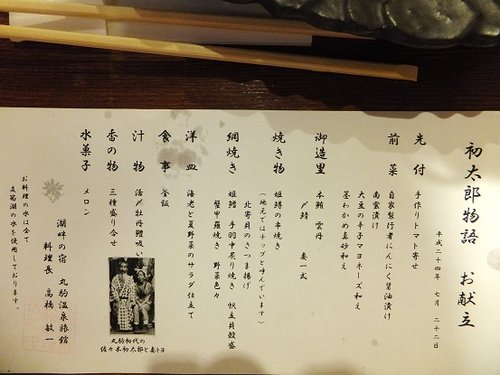 初太郎物語　お献立
平成二十四年　七月　二十二日
先付　手作りトマト寄せ
前菜　自家製行者にんにく醤油漬け
南蛮漬け
大豆の辛子マヨネーズ和え
茎わかめ真砂和え
御造里　本鮪　雲丹
〆鯖　妻一式
焼き物　姫鱒の串焼き
（地元ではチップと呼んでいます）
北寄貝のさつま揚げ
網焼き　姫鱈　手羽中炙り焼き　帆立貝殻盛
蟹甲羅焼き　野菜色々
洋皿　海老と夏野菜のサラダ仕立て
食事　釜飯
汁物　活〆牡丹鱧吸い
香の物　三種盛り合せ
水菓子　メロン
湖畔の宿　丸駒温泉旅館
料理長　高橋　敏一
お料理の水は全て
支笏湖の水を使用しております。
丸駒初代の
佐々木初太郎と妻トヨ